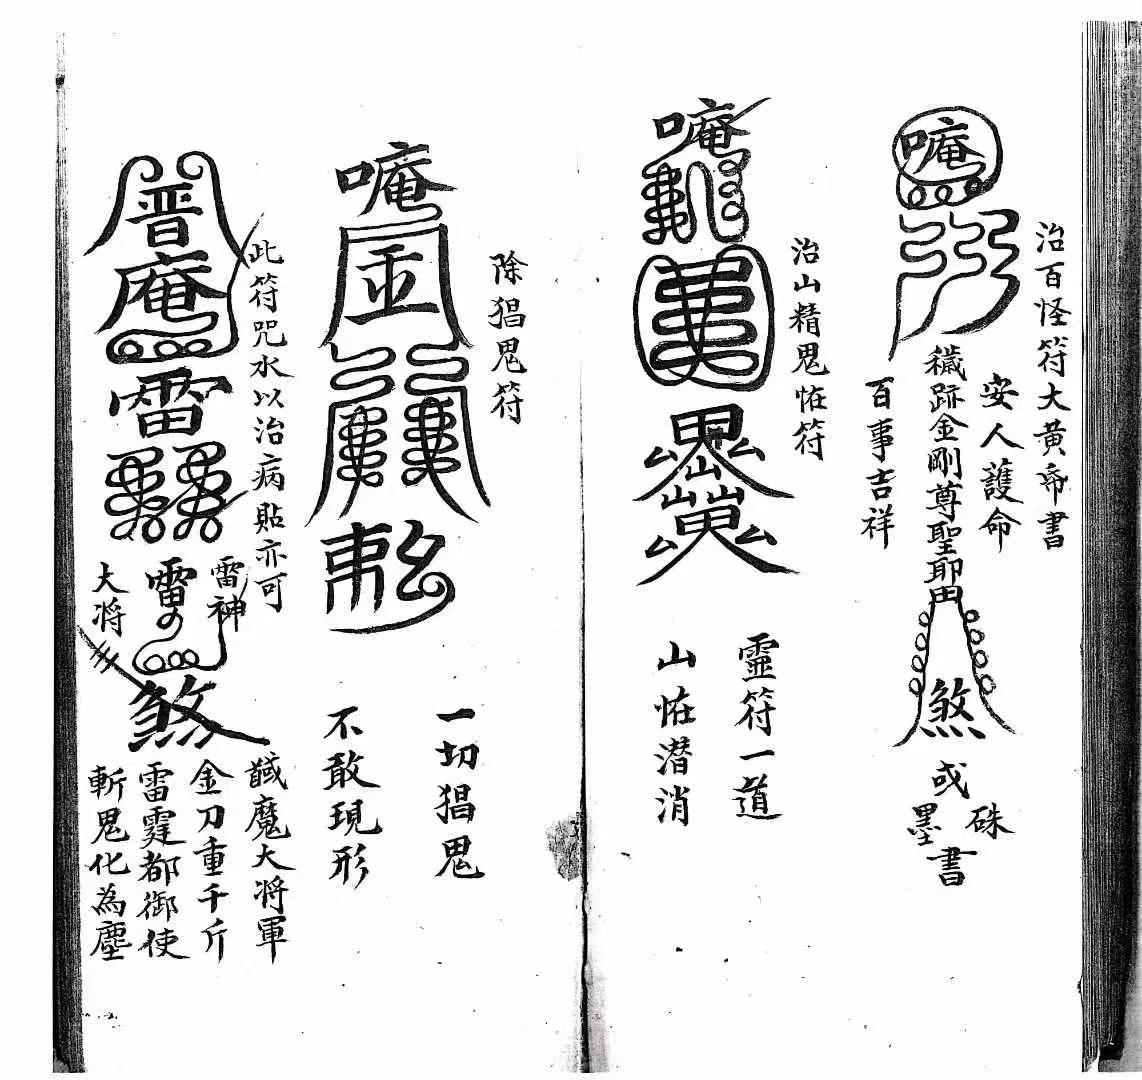 治百怪符大黃帋書
唵
安人護命
穢跡金剛尊聖
煞
百事吉祥
或硃墨書
治山精鬼恠符
唵
靈符一道
山恠潜消
除猖鬼符
唵
金
一切猖鬼
不敢現形
此符咒水以治病貼亦可
普庵
雷
雷神
雷
大将
煞
馘魔大将軍
金刀重千斤
雷霆都御使
斬鬼化為塵